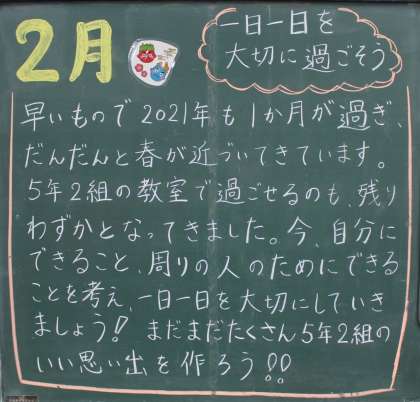 2月
一日一日を
大切に過ごそう
早いもので2021年も1か月が過ぎ、
だんだんと春が近づいてきています。
5年2組の教室で過ごせるのも、残り
わずかとなってきました。今、自分に
できること、周りの人のためにできる
ことを考え、一日一日を大切にしていき
ましょう! まだまだたくさん5年2組の
いい思い出を作ろう!!